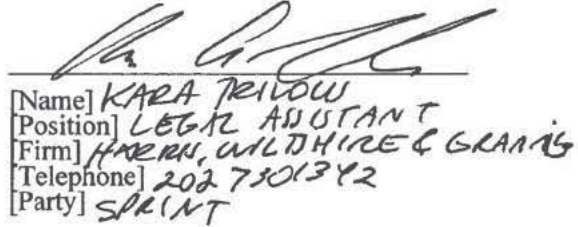 [Name] KARA TRILOW
[Position] LEGAL ASSISTANT
[Firm] HARRIS, WILTSHIRE & GRANNIS
[Telephone] 202 7301342
[Party] SPRINT